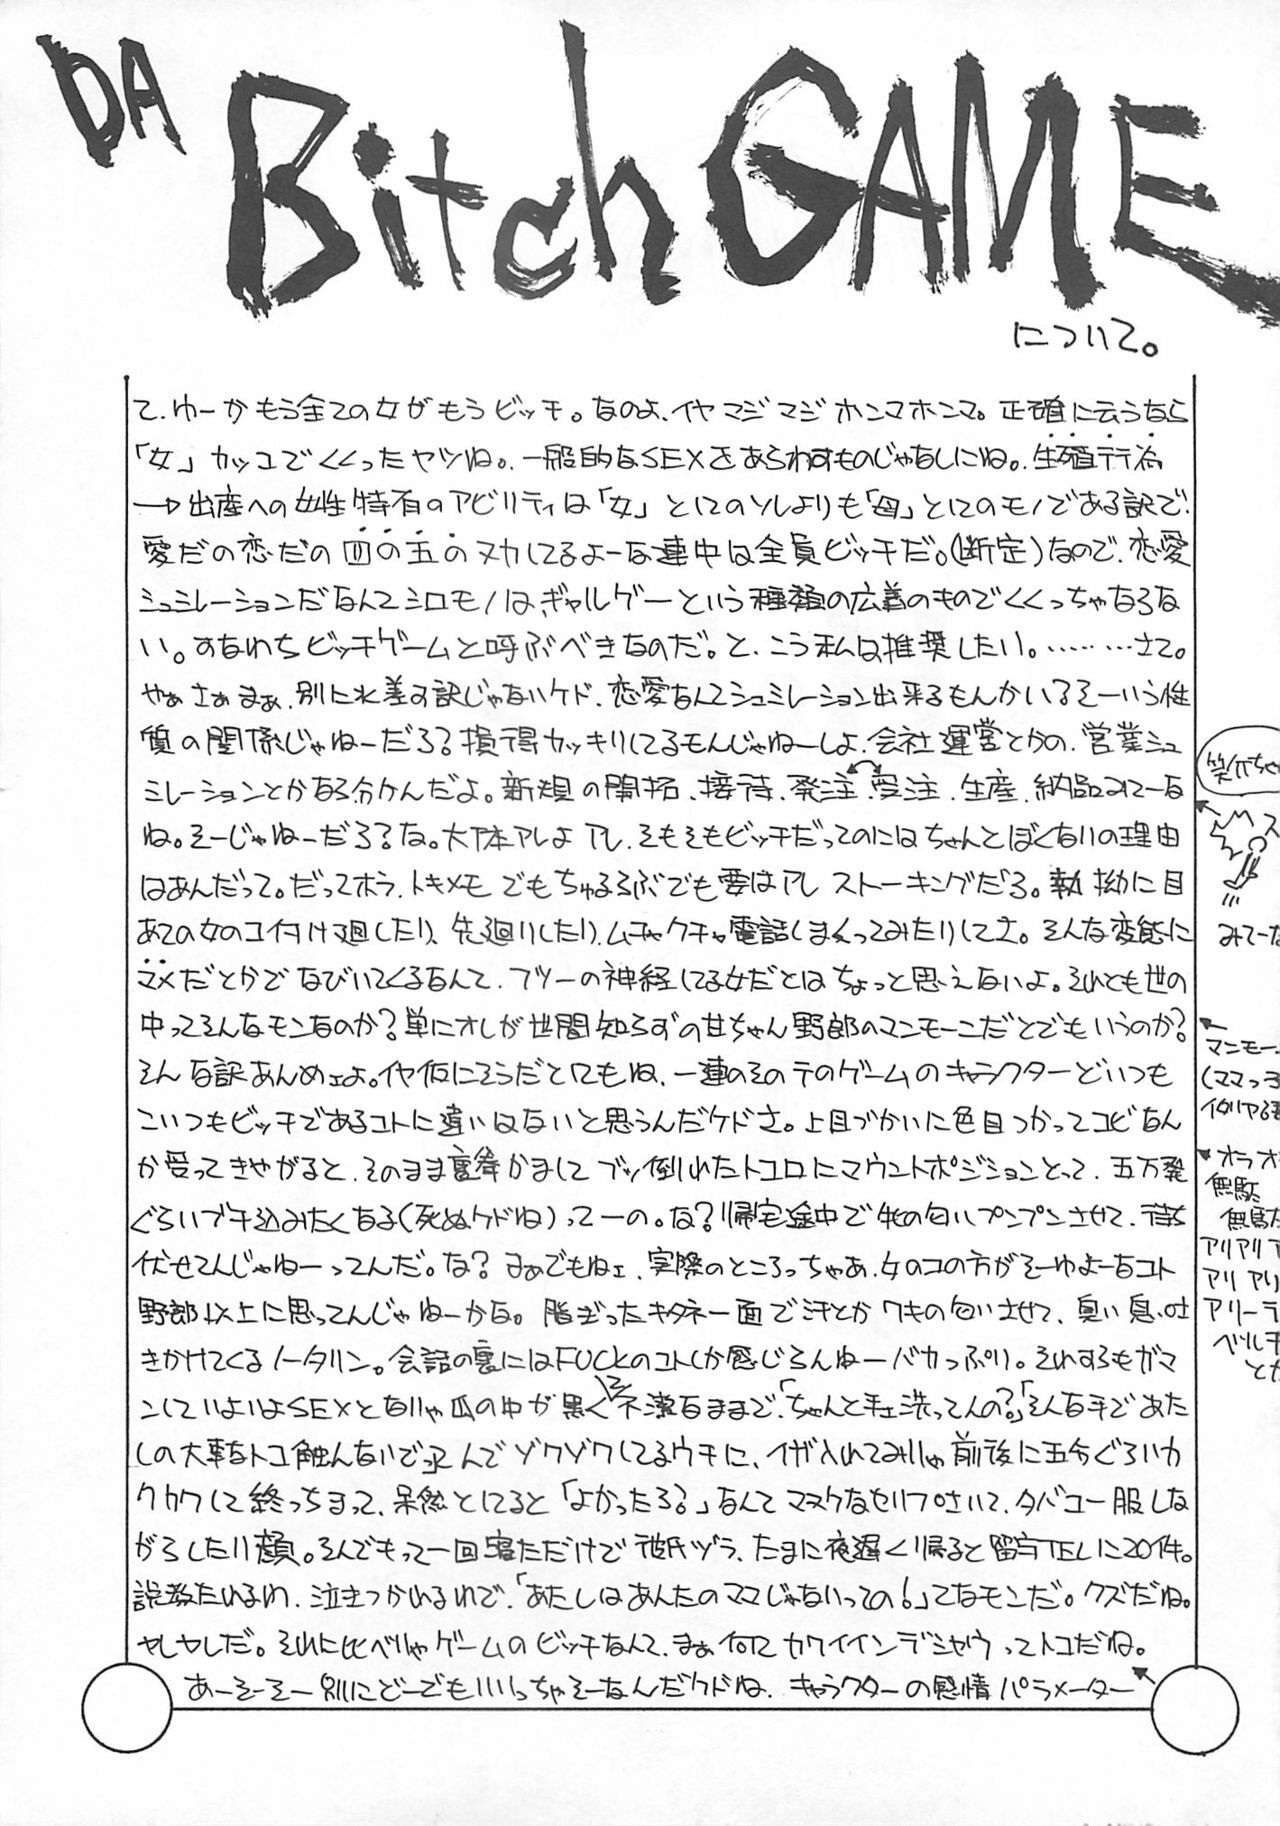 DA Bitch GAME
について。
て、ゆーかもう全ての女がもうビッチ。なのよ、イヤマジマジホンマホンマ。正確に云うなら
「女」カッコでくくったヤツね。一般的なSEXをあらわすものじゃなしにね。生殖行為
→出産への女性特有のアビリティは「女」としてのソレよりも「母」としてのモノである訳で、
愛だの恋だの四の五のヌカしてるよーな連中は全員ビッチだ。(断定)なので、恋愛
シュミレーションだなんてシロモノはギャルゲーという種類の広義のものでくくっちゃならな
い。すなわちビッチゲームと呼ぶべきなのだ。と、こう私は推奨したい。………さて。
やぁさぁまぁ、別に水差す訳じゃないケド、恋愛なんてシュミレーション出来るもんかい?そーいう性
質の関係じゃねーだろ?損得カッキリしてるモンじゃねーしよ、会社運営とかの、営業シュ
ミレーションとかなら分かんだよ。新規の開拓、接待、発注、受注、生産、納品みてーな
ね。そーじゃねーだろ?な。大体アレよアレ、そもそもビッチだってのにはちゃんとぼくないの理由
はあんだって。だってホラ、トキメモでもちゅるるぶでも要はアレストーキングだろ。執拗に目
あての女のコ付け廻したり、先廻りしたり、ムチャクチャ電話しまくってみたりしてさ。そんな変態に
マメだとかでなびいてくるなんて、フツーの神経してる女だとはちょっと思えないよ。それとも世の
中ってそんなモンなのか?単にオレが世間知らずの甘ちゃん野郎のマンモーニだとでもいうのか?
そんな訳あんめェよ。イヤ仮にそうだとしてもね、一連のそのテのゲームのキャラクターどいつも
こいつもビッチであるコトに違いはないと思うんだケドさ。上目づかいに色目つかってコビなん
か受ってきやがると、そのまま裏拳かましてブッ倒れたトコロにマウントポジションとって、五万発
ぐらいブチ込みたくなる(死ぬケドね)ってーの。な?帰宅途中で牝の匂いプンプンさせて、待ち
伏せてんじゃねーってんだ。な?まぁでもねェ、実際のところっちゃあ、女のコの方がそーゆよーなコト
野郎以上に思ってんじゃねーかな。脂ぎったキタネー面で汗とかワキの匂いさせて、臭い息吐
きかけてくるノータリン。会話の裏にはFUCKのコトしか感じらんねーバカっぷり。それすらもガマ
ンしていよいよSEXとなりゃ爪の中が黒くて不潔なままで、「ちゃんと手ェ洗ってんの?」「そんな手であた
しの大事なトコ触んないで」てんでゾクゾクしてるウチに、イザ入れてみりゃ前後に五分ぐらいカ
クカクして終っちまって、呆然としてると「よかったろ?」なんてマヌケなセリフさいて、タバコ一服しな
がらしたり顔。そんでもって一回寝ただけで彼氏ヅラ、たまに夜遅く帰ると留守TELに20件。
説教たれるわ、泣きつかれるわで、「あたしはあんたのママじゃないっての!」てなモンだ。クズだね。
ヤレヤレだ。それに比べりゃゲームのビッチなんて、まぁ何てカワイインデシャウってトコだね。
あーそーそー別にどーでもいいっちゃそーなんだケドね、キャラクターの感情パラメーター
みてーな
マンモー
(ママっ子
オラオ
無駄
無駄
アリアリア
アリアリ
アリーデ
ベルチ
とか